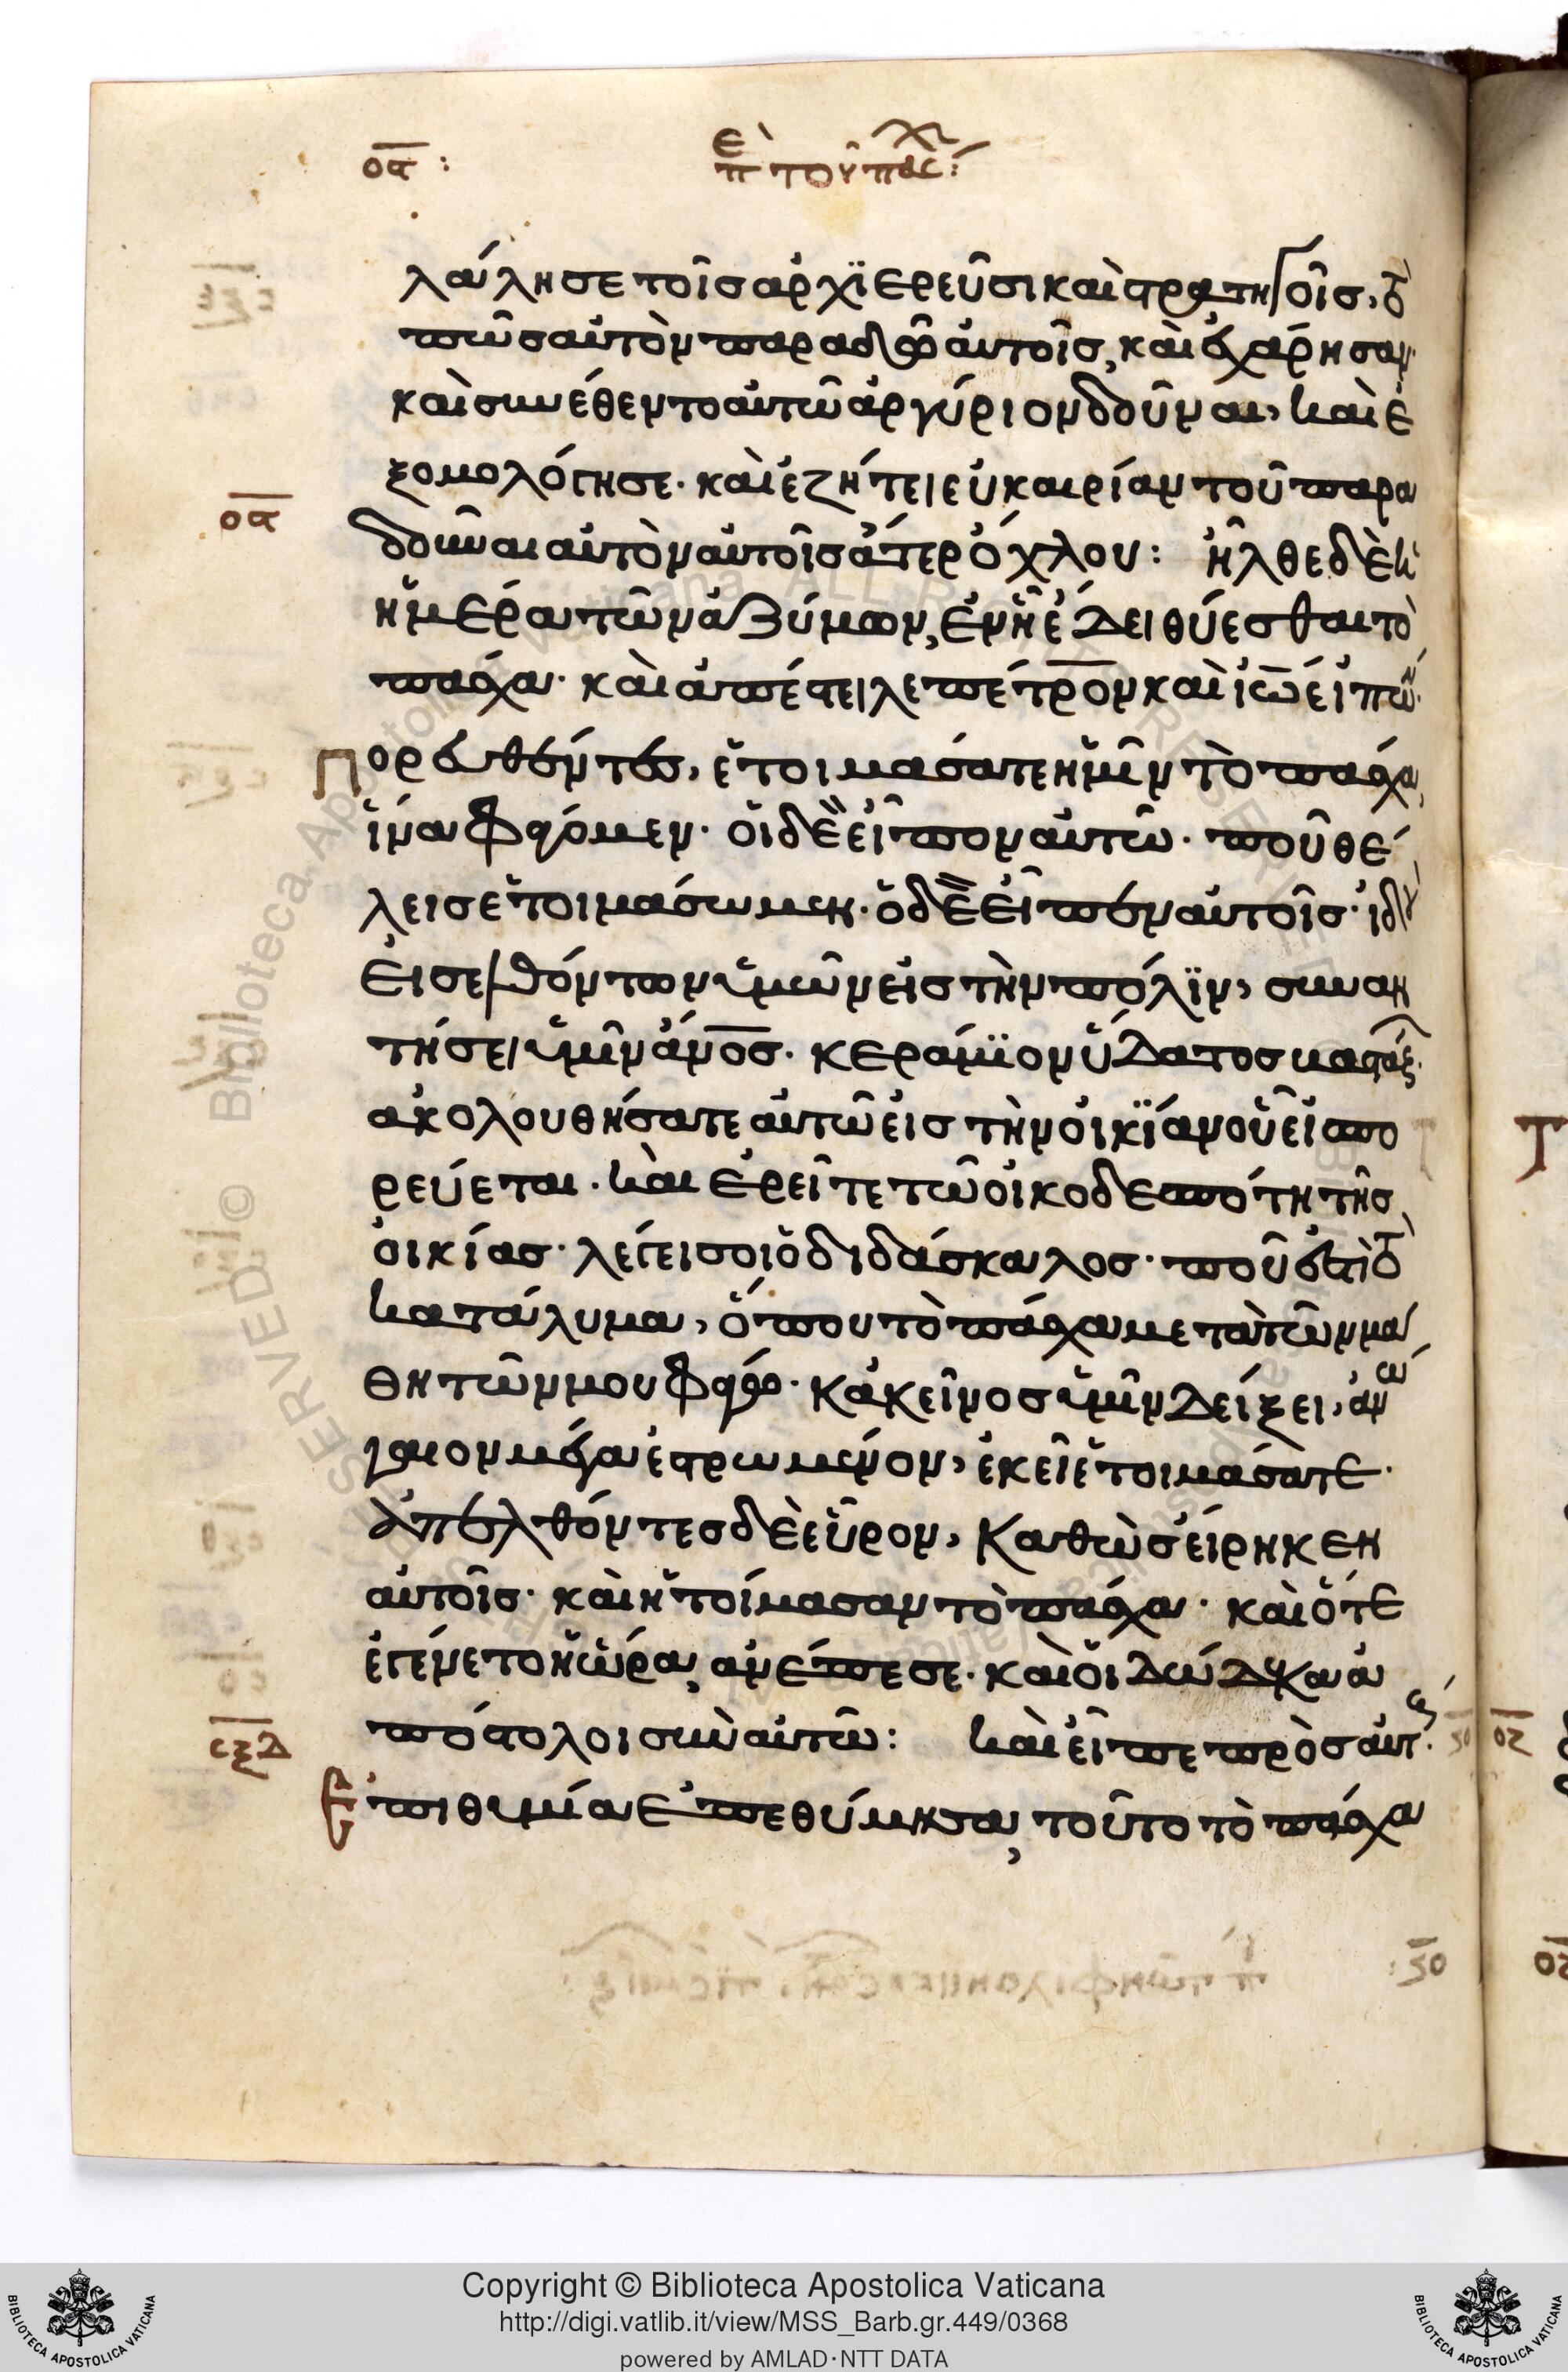 οα : περὶ τοῦ πάσχα :
λάλησε τοῖς ἀρχϊερεῦσι καὶ στρατηγοῖς, τὸ
πῶς αὐτὸν παραδῶ αὐτοῖς, καὶ ἐχάρησαν·
καὶ συνέθεντο αὐτῶ ἀργύριον δοῦναι, καὶ ἐ
ξομολόγησε· καὶ ἐζήτει εὐκαιρίαν τοῦ παρα
οα
δοῦναι αὐτὸν αὐτοῖς ἄτερ ὄχλου : ἦλθε δὲ ἡ
ἡμέρα τῶν ἀζύμων, ἐν ἧ ἔδει θύεσθαι τὸ
πάσχα· καὶ ἀπέστειλε πέτρον καὶ ἰω̅ εἰπών·
Πορευθέντες, ἑτοιμάσατε ἡμῖν τὸ πάσχα,
ἵνα φάγομεν· οἱ δὲ εἶπον αὐτῶ· ποῦ θέ
λεις ἑτοιμάσωμεν· ὁ δὲ εἶπεν αὐτοῖς· ἰδοὺ
εἰσελθόντων ὑμῶν εἰς τὴν πόλϊν, συναν
τήσει ὑμῖν ἄν̅ο̅ς̅· κεράμϊον ὕδατος βαστάζ·
ακολουθήσατε αὐτῶ εἰς τὴν οἰκΐαν οὗ εἰσπο
ρεύεται· καὶ ἐρεῖτε τῶ οἰκοδεσπότη τῆς
οἰκίας· λέγει σοι ὁ διδάσκαλος· ποῦ ἐστὶ τὸ
κατάλυμα, ὅπου τὸ πάσχα μετὰ τῶν μα
θητῶν μου φάγω· κἀκεῖνος ὑμῖν δείξει, ἀνώ
γαιον μέγα ἐστρωμένον, ἐκεῖ ἑτοιμάσατε·
ἀπελθόντες δὲ εὗρον, καθὼς εἴρηκεν
αὐτοῖς· καὶ ἡτοίμασαν τὸ πάσχα· καὶ ὅτε
ἐγένετο ἡ ὥρα, ανέπεσε· καὶ οἱ δώδεκα ἀ
πόστολοι σὺν αὐτῶ : καὶ εἶπε πρὸς αὐτούς·
σξδ
Ἐπιθυμία ἐπεθύμησα, τοῦτο τὸ πάσχα
Copyright © Biblioteca Apostolica Vaticana
http://digi.vatlib.it/view/MSS_Barb.gr.449/0368
powered by AMLAD·NTT DATA
BIBLIOTECA APOSTOLICA VATICANA
BIBLIOTECA APOSTOLICA VATICANA